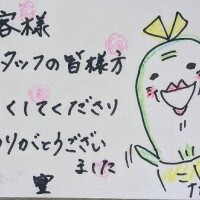 客様
タッフの皆様方
くしてくださり
りがとうござい
ました